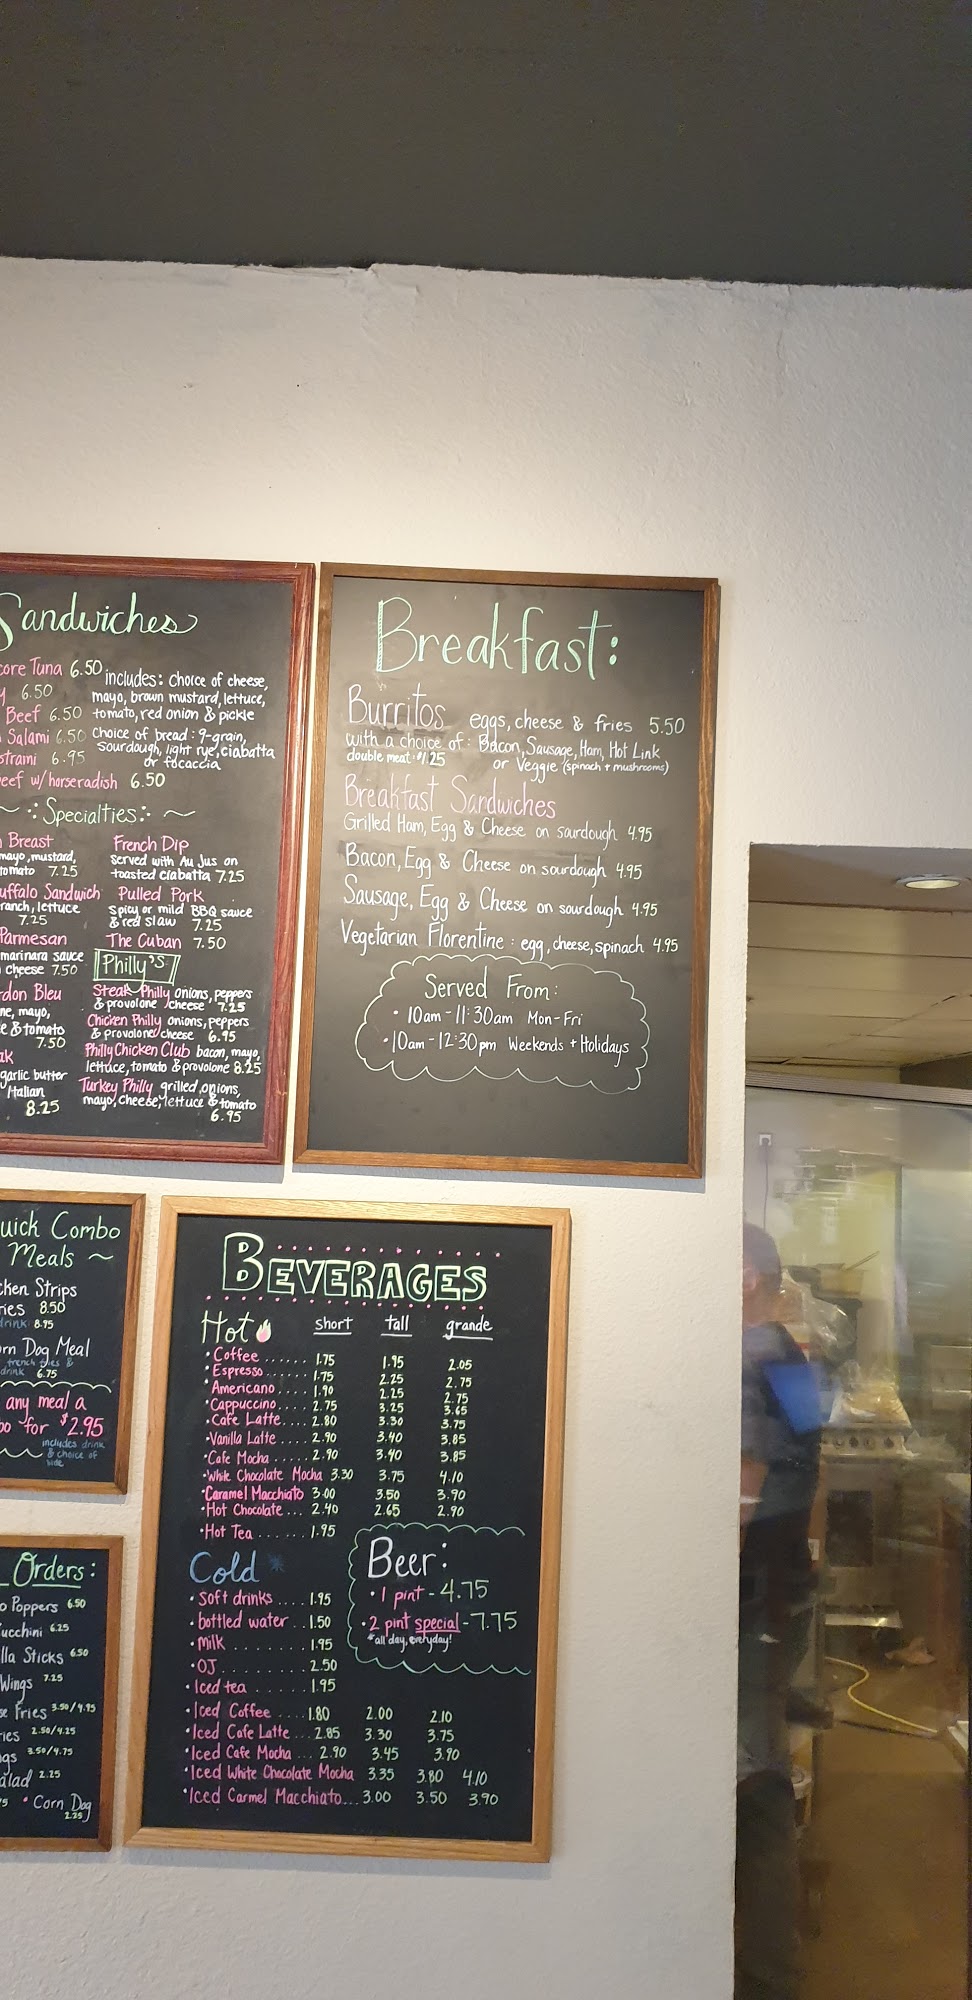 Sandwiches
core Tuna 6.50
6.50
Beef 6.50
Salami 6.50
strami 6.95
eef w/horseradish 6.50
includes: choice of cheese,
mayo, brown mustard, lettuce,
tomato, red onion & pickle
Choice of bread: 9-grain,
sourdough, light rye, ciabatta
or focaccia
Specialties:
Breast
mayo, mustard,
omato 7.25
uffalo Sandwich
ranch, lettuce
7.25
Parmesan
marinara sauce
cheese 7.50
don Bleu
ne, mayo,
e & tomato
7.50
ak
garlic butter
Italian
8.25
French Dip
served with Au Jus on
toasted ciabatta 7.25
Pulled Pork
spicy or mild BBQ sauce
& red slaw 7.25
The Cuban 7.50
Philly's
Steak Philly onions, peppers
& provolone cheese 7.25
Chicken Philly onions, peppers
& provolone cheese 6.95
Philly Chicken Club bacon, mayo,
lettuce, tomato & provolone 8.25
Turkey Philly grilled onions,
mayo, cheese, lettuce & tomato
6.95
Breakfast:
Burritos eggs, cheese & fries 5.50
with a choice of: Bacon, Sausage, Ham, Hot Link
double meat: $1.25 or Veggie (spinach + mushrooms)
Breakfast Sandwiches
Grilled Ham, Egg & Cheese on sourdough 4.95
Bacon, Egg & Cheese on sourdough 4.95
Sausage, Egg & Cheese on sourdough 4.95
Vegetarian Florentine: egg, cheese, spinach 4.95
Served From:
• 10am-11:30am Mon-Fri
• 10am-12:30pm Weekends + Holidays
uick Combo
Meals ~
cken Strips
ries 8.50
drink 8.95
rn Dog Meal
french fries &
drink 6.75
any meal a
bo for $2.95
includes drink
& choice of
side
Orders:
o Poppers 6.50
ucchini 6.25
lla Sticks 6.50
Wings 7.25
se Fries 3.50/4.95
ries 2.50/4.25
ngs 3.50/4.75
alad 2.25
• Corn Dog
2.25
BEVERAGES
Hot short tall grande
• Coffee ...... 1.75 1.95 2.05
• Espresso ...... 1.75 2.25 2.75
• Americano .... 1.90 2.25 2.75
• Cappuccino .... 2.75 3.25 3.65
• Cafe Latte .... 2.80 3.30 3.75
• Vanilla Latte .... 2.90 3.40 3.85
• Cafe Mocha ..... 2.90 3.40 3.85
• White Chocolate Mocha 3.30 3.75 4.10
• Caramel Macchiato 3.00 3.50 3.90
• Hot Chocolate ... 2.40 2.65 2.90
• Hot Tea ....... 1.95
Cold
• soft drinks .... 1.95
• bottled water .. 1.50
• milk ........ 1.95
• OJ ......... 2.50
• Iced tea ..... 1.95
• Iced Coffee .... 1.80 2.00 2.10
• Iced Cafe Latte ... 2.85 3.30 3.75
• Iced Cafe Mocha ... 2.90 3.45 3.90
• Iced White Chocolate Mocha 3.35 3.80 4.10
• Iced Carmel Macchiato... 3.00 3.50 3.90
Beer:
• 1 pint - 4.75
• 2 pint special - 7.75
*all day, everyday!